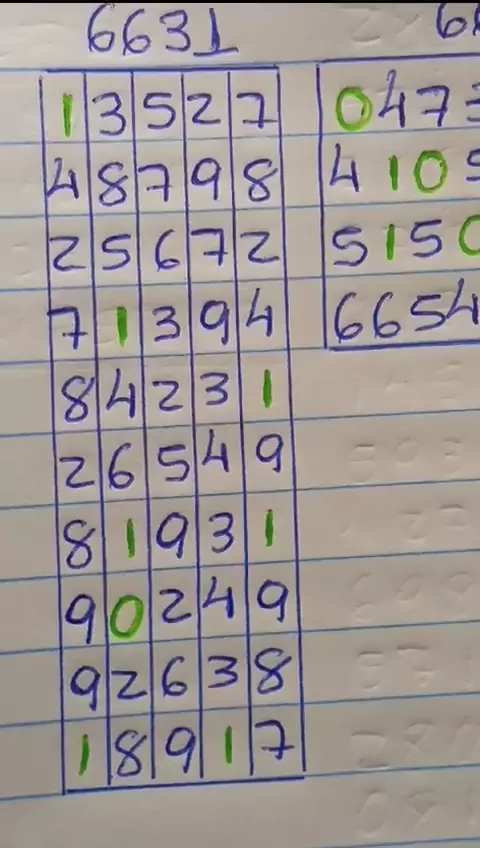 6631
1 3 5 2 7
4 8 7 9 8
2 5 6 7 2
7 1 3 9 4
8 4 2 3 1
2 6 5 4 9
8 1 9 3 1
9 0 2 4 9
9 2 6 3 8
1 8 9 1 7
6
0 4 7
4 1 0
5 1 5 0
6 6 5 4